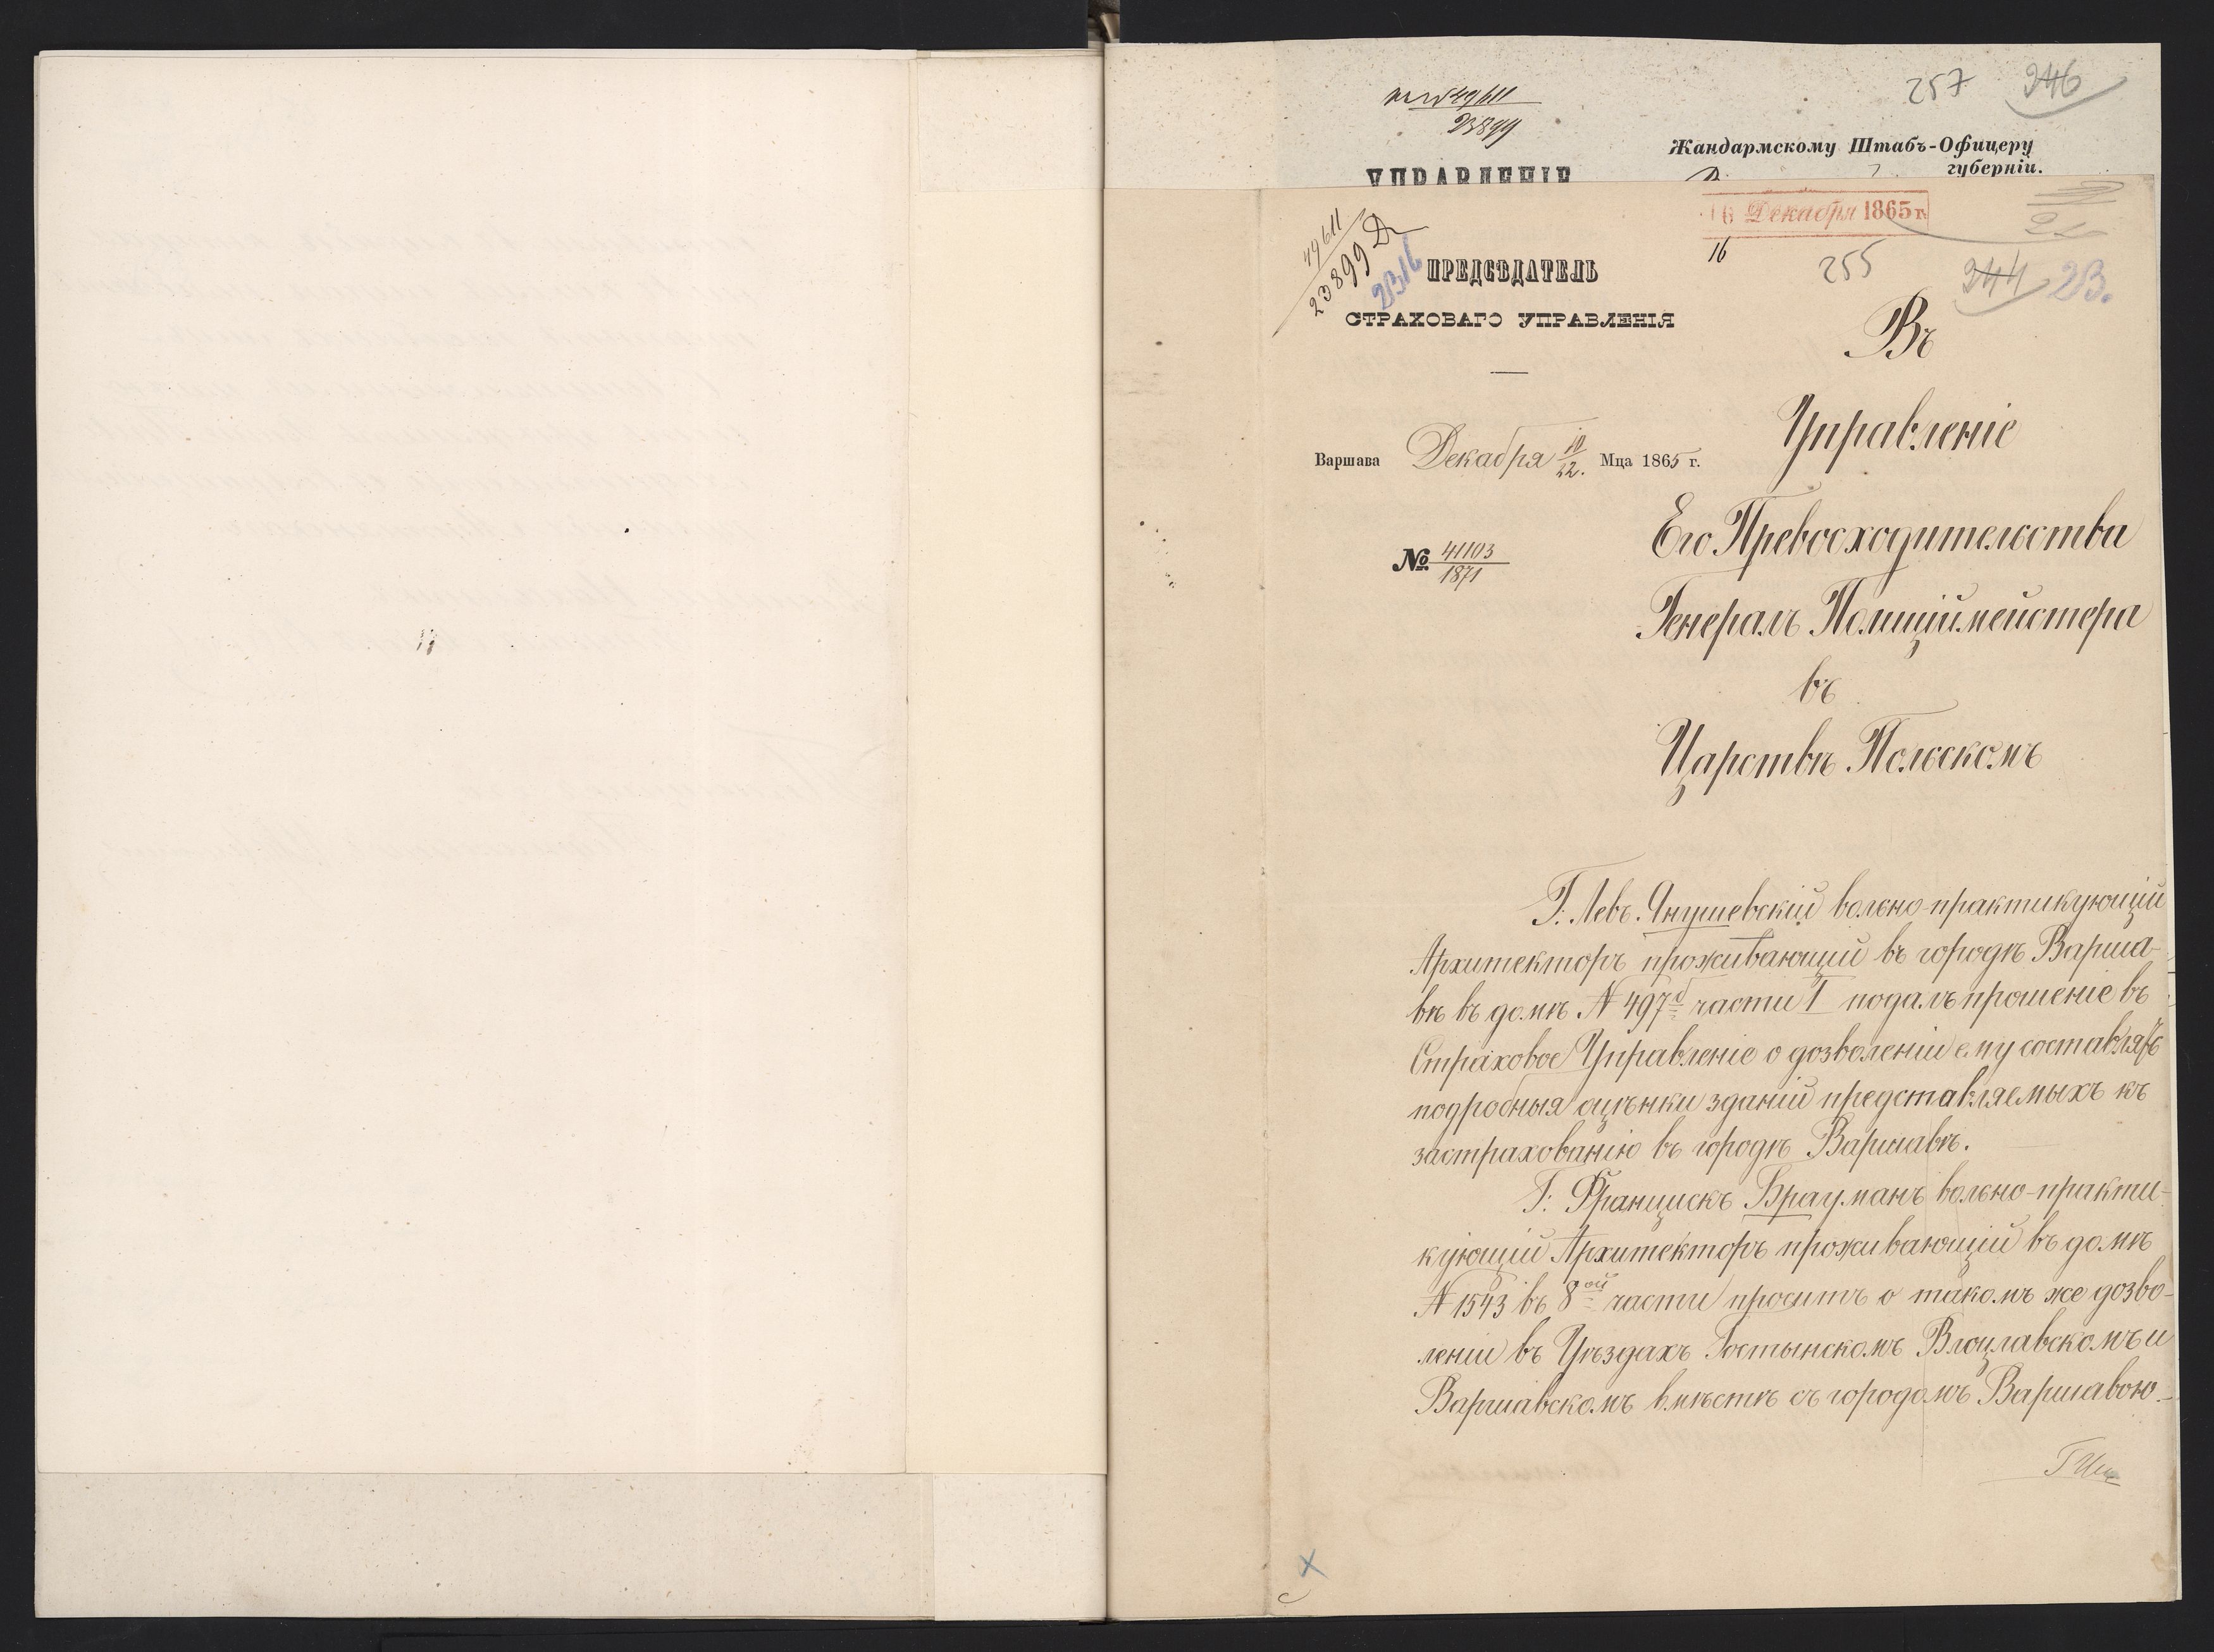 257 246
49611
23899
Жандармскому Штабъ-Офицеру
губерніи.
УПРАВЛЕНІЕ
16 Декабря 1865 г.
16
49611
23899
2316
255 244 23.
ПРЕДСѢДАТЕЛЬ
СТРАХОВАГО УПРАВЛЕНІЯ
Варшава Декабря 10/22. Мца 1865 г.
№ 41103/1871
Въ
Управленіе
Его Превосходительства
Генералъ Полиціймейстера
въ
Царствѣ Польскомъ
Г: Левъ Янушевскій вольно-практикующій
Архитекторъ проживающій въ городѣ Варша-
вѣ въ домѣ N 497б части I подалъ прошеніе въ
Страховое Управленіе о дозволеніи ему составлять
подробныя оцѣнки зданій представляемыхъ къ
застрахованію въ городѣ Варшавѣ.
Г: Францискъ Брауманъ вольно-практи-
кующій Архитекторъ проживающій въ домѣ
N 1543 въ 8ой части проситъ о такомъ же дозво-
леніи въ Уѣздахъ Гостынскомъ Влоцлавскомъ и
Варшавскомъ вмѣстѣ съ городомъ Варшавою.-